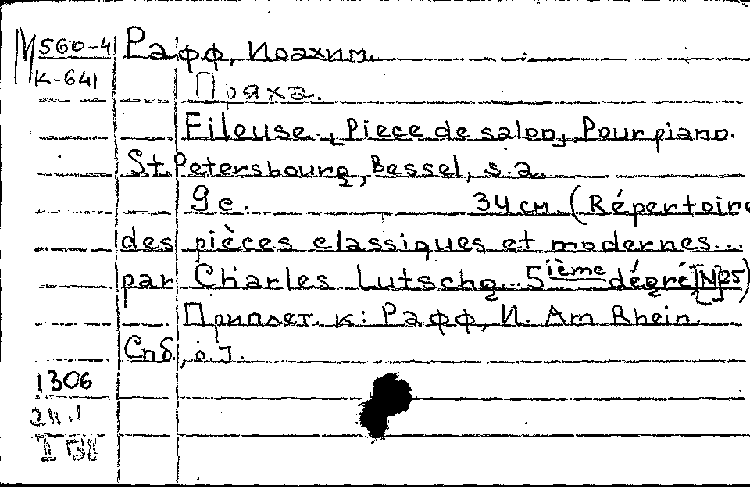 М 560-4 Рафф, Иоахим.
К-641 Пряха.
Fileuse. [Piece de salon]. Pour piano.
St. Petersbourg, Bessel, s.a.
9 с. 34 см (Répertoire
des pièces classiques et modernes...
par Charles Lutschg. 5ième dégré [N25)
Приплет. к: Рафф, И. Am Rhein.
Спб,
1306